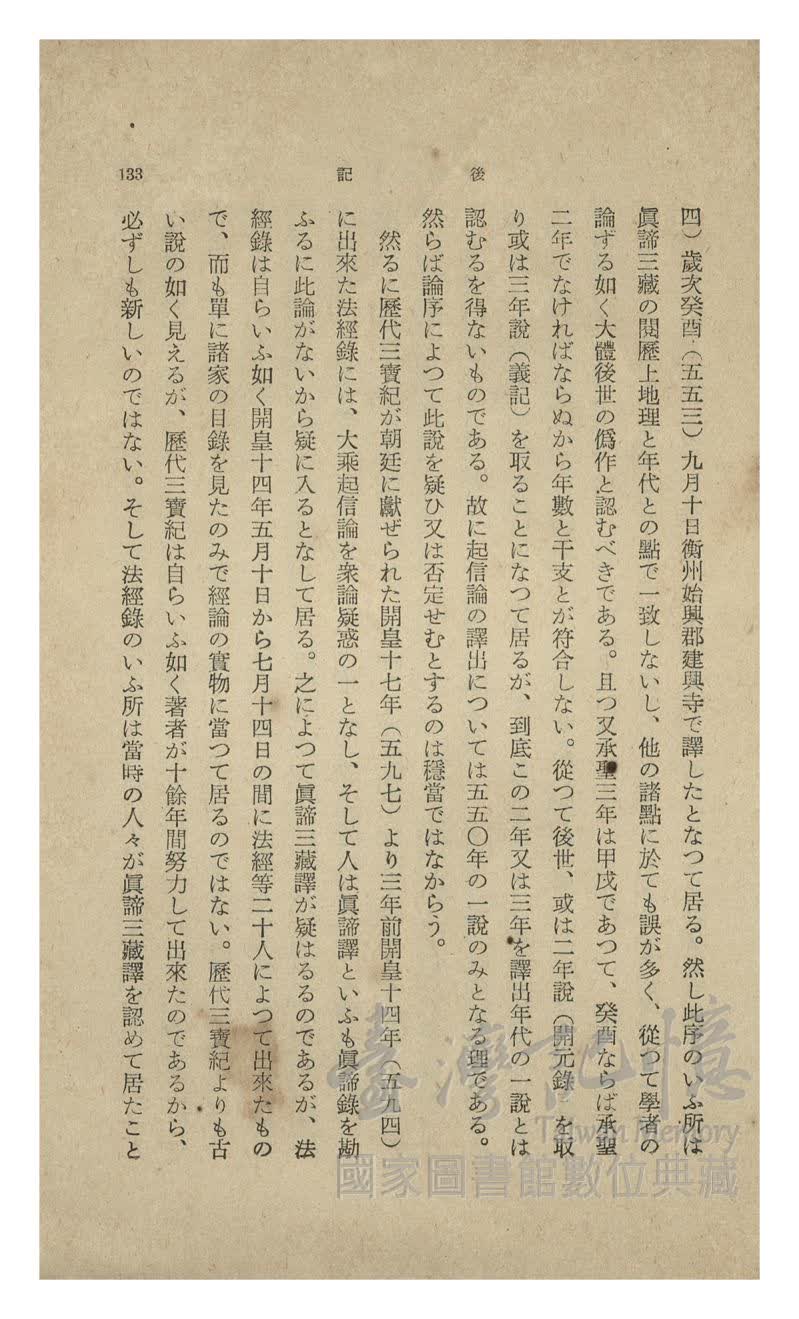 後記
133
四）歲次癸酉（五五三）九月十日衡州始興郡建興寺で譯したとなつて居る。然し此序のいふ所は
眞諦三藏の閱歷上地理と年代との點で一致しないし、他の諸點に於ても誤が多く、從つて學者の
論ずる如く大體後世の僞作と認むべきである。且つ又承聖三年は甲戌であつて、癸酉ならば承聖
二年でなければならぬから年數と干支とが符合しない。從つて後世、或は二年說（開元錄 を取
り或は三年說（義記）を取ることになつて居るが、到底この二年又は三年を譯出年代の一說とは
認むるを得ないものである。故に起信論の譯出については五五〇年の一說のみとなる理である。
然らば論序によつて此說を疑ひ又は否定せむとするのは穩當ではなからう。
然るに歷代三寶紀が朝廷に獻ぜられた開皇十七年（五九七）より三年前開皇十四年（五九四）
に出來た法經錄には、大乘起信論を衆論疑惑の一となし、そして人は眞諦譯といふも眞諦錄を勘
ふるに此論がないから疑に入るとなして居る。之によつて眞諦三藏譯が疑はるるのであるが、法
經錄は自らいふ如く開皇十四年五月十日から七月十四日の間に法經等二十人によつて出來たもの
で、而も單に諸家の目錄を見たのみで經論の實物に當つて居るのではない。歷代三寶紀よりも古
い說の如く見えるが、歷代三寶紀は自らいふ如く著者が十餘年間努力して出來たのであるから、
必ずしも新しいのではない。そして法經錄のいふ所は當時の人々が眞諦三藏譯を認めて居たこと
臺灣記憶
Taiwan Memory
國家圖書館數位典藏